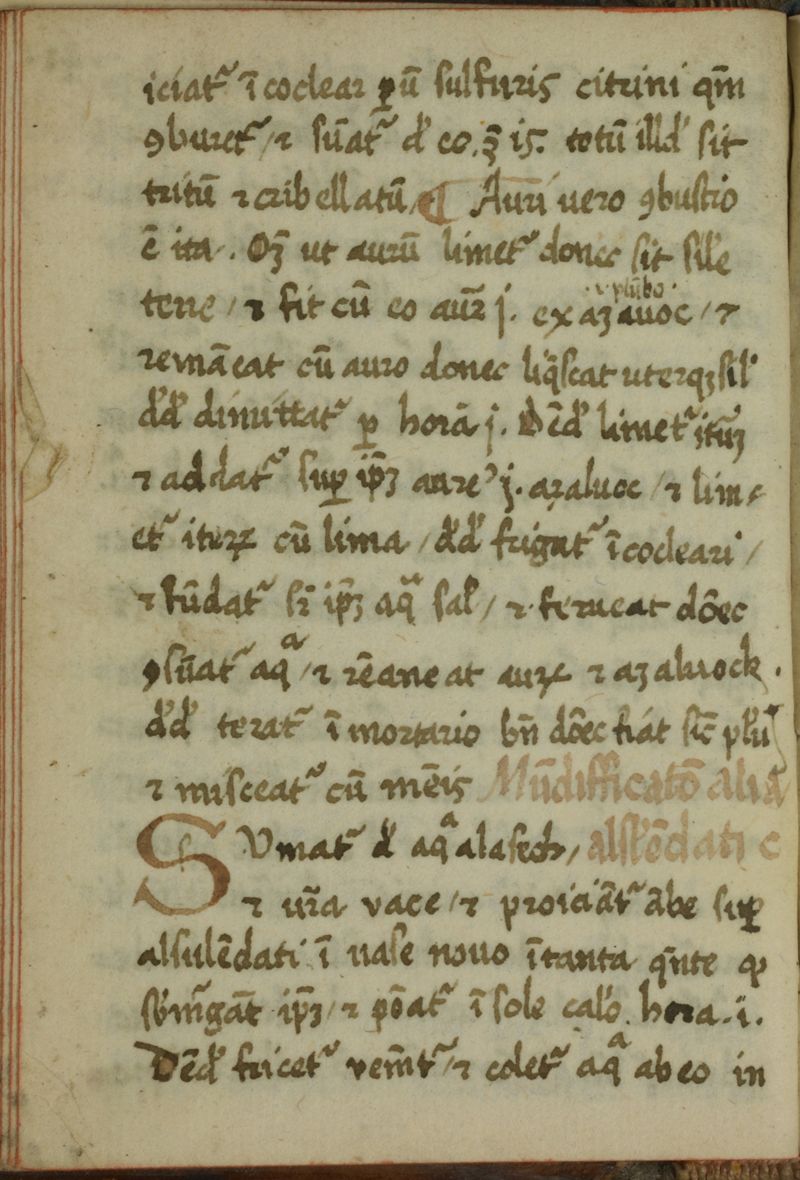 iciat᷑ ī coclear pū sulfuris citrini qm̄
ꝯburet᷑ / ⁊ sūat᷑ d' eo. ʒ̄ is. totū illd' sit
tritū ⁊ cribellatū ¶ Auri uero ꝯbustio
ē ita. Oꝫ ut aurū limet᷑ donec sit sile
· ⁊ plūbo ·
terre / ⁊ sit cū eo aur̄ j. ex aꝫauoc / ⁊
remāeat cū auro donec liq̄scat uterqꝫ sil'
d'd' dimittat᷑ ꝑ horā j. Dēd' limet᷑
⁊ addat᷑ suꝑ ip̄ꝫ j. aꝫaluoc / ⁊ lim
et᷑ iteꝝ cū lima / d'd' frigat᷑ ī cocleari /
⁊ fūdat᷑ sr̄ ip̄ꝫ aqᷓ sal' / ⁊ feru eat dōec
ꝯsūat᷑ aqᷓ / ⁊ rēaneat auꝝ ⁊ aꝫaluock.
d'd' terat᷑ ī mortario bn̄ dōec fiat sic̄
⁊ misceat᷑ cū mēis Mūdifficatō alia
SVmat᷑ d' aqᷓ alasech, alsl'ēdati c
⁊ uīa vace / ⁊ proiciāt᷑ ābe suꝑ
alsulēdati ī uase nouo ītanta qn̄te
ip̄ꝫ / ⁊ pōat᷑ ī sole cal'o. hora .i.
Dēd' fricet᷑ vem̄t᷑ / ⁊ colet᷑ aqᷓ ab eo in